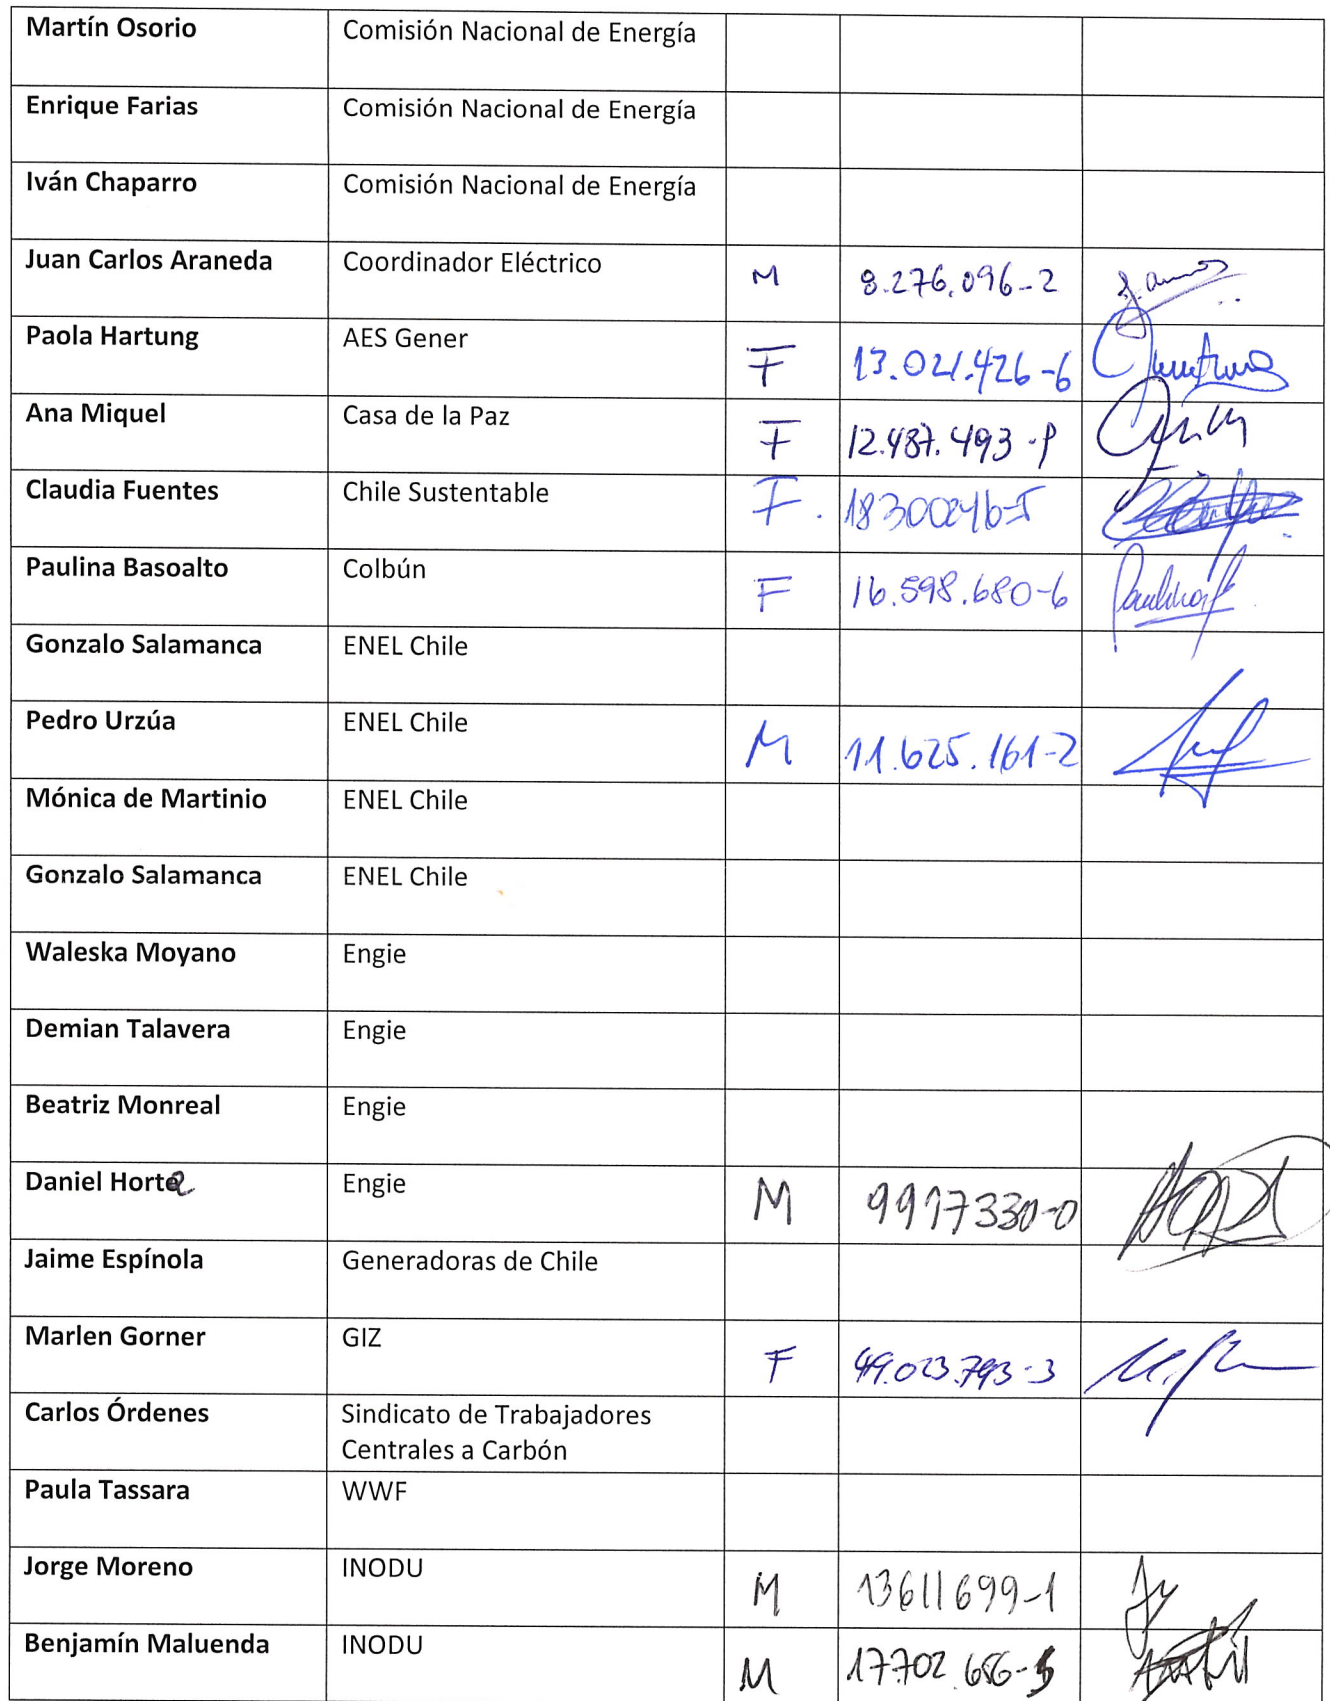 Martín Osorio Comisión Nacional de Energía
Enrique Farias Comisión Nacional de Energía
Iván Chaparro Comisión Nacional de Energía
Juan Carlos Araneda Coordinador Eléctrico M 8.276.096-2
Paola Hartung AES Gener F 13.021.426-6
Ana Miquel Casa de la Paz F 12.487.493-9
Claudia Fuentes Chile Sustentable F. 18300246-5
Paulina Basoalto Colbún F 16.598.680-6
Gonzalo Salamanca ENEL Chile
Pedro Urzúa ENEL Chile M 11.625.161-2
Mónica de Martinio ENEL Chile
Gonzalo Salamanca ENEL Chile
Waleska Moyano Engie
Demian Talavera Engie
Beatriz Monreal Engie
Daniel Horte Engie M 9917330-0
Jaime Espínola Generadoras de Chile
Marlen Gorner GIZ F 49.023.793-3
Carlos Órdenes Sindicato de Trabajadores
Centrales a Carbón
Paula Tassara WWF
Jorge Moreno INODU M 13611699-1
Benjamín Maluenda INODU M 17702.656-5